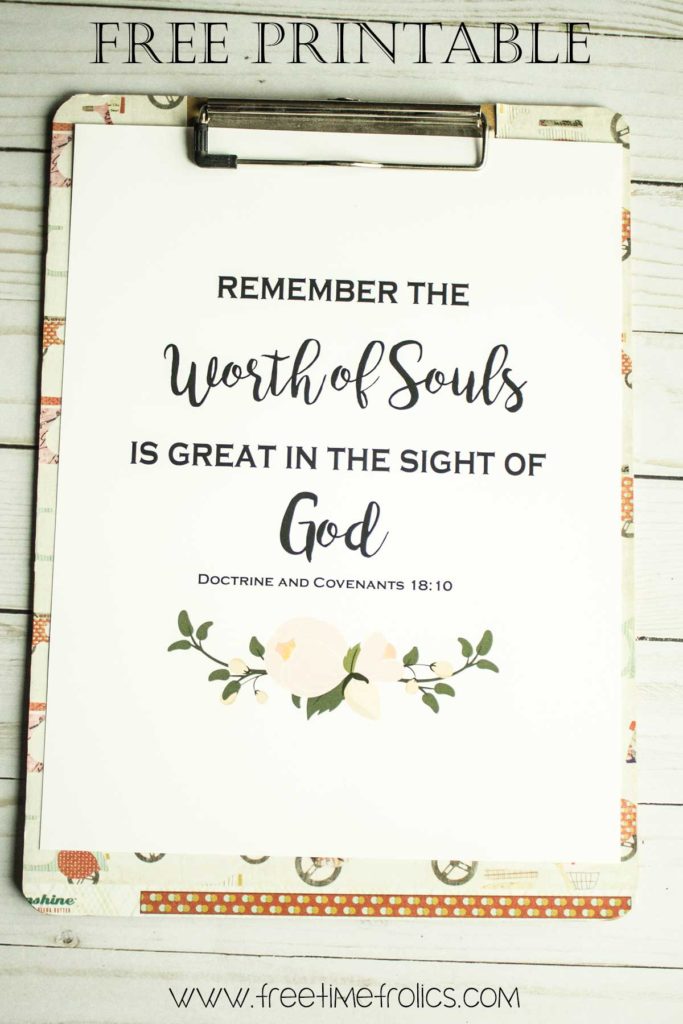 FREE PRINTABLE
REMEMBER THE
Worth of Souls
IS GREAT IN THE SIGHT OF
God
DOCTRINE AND COVENANTS 18:10
nshine
www.freetimefrolics.com